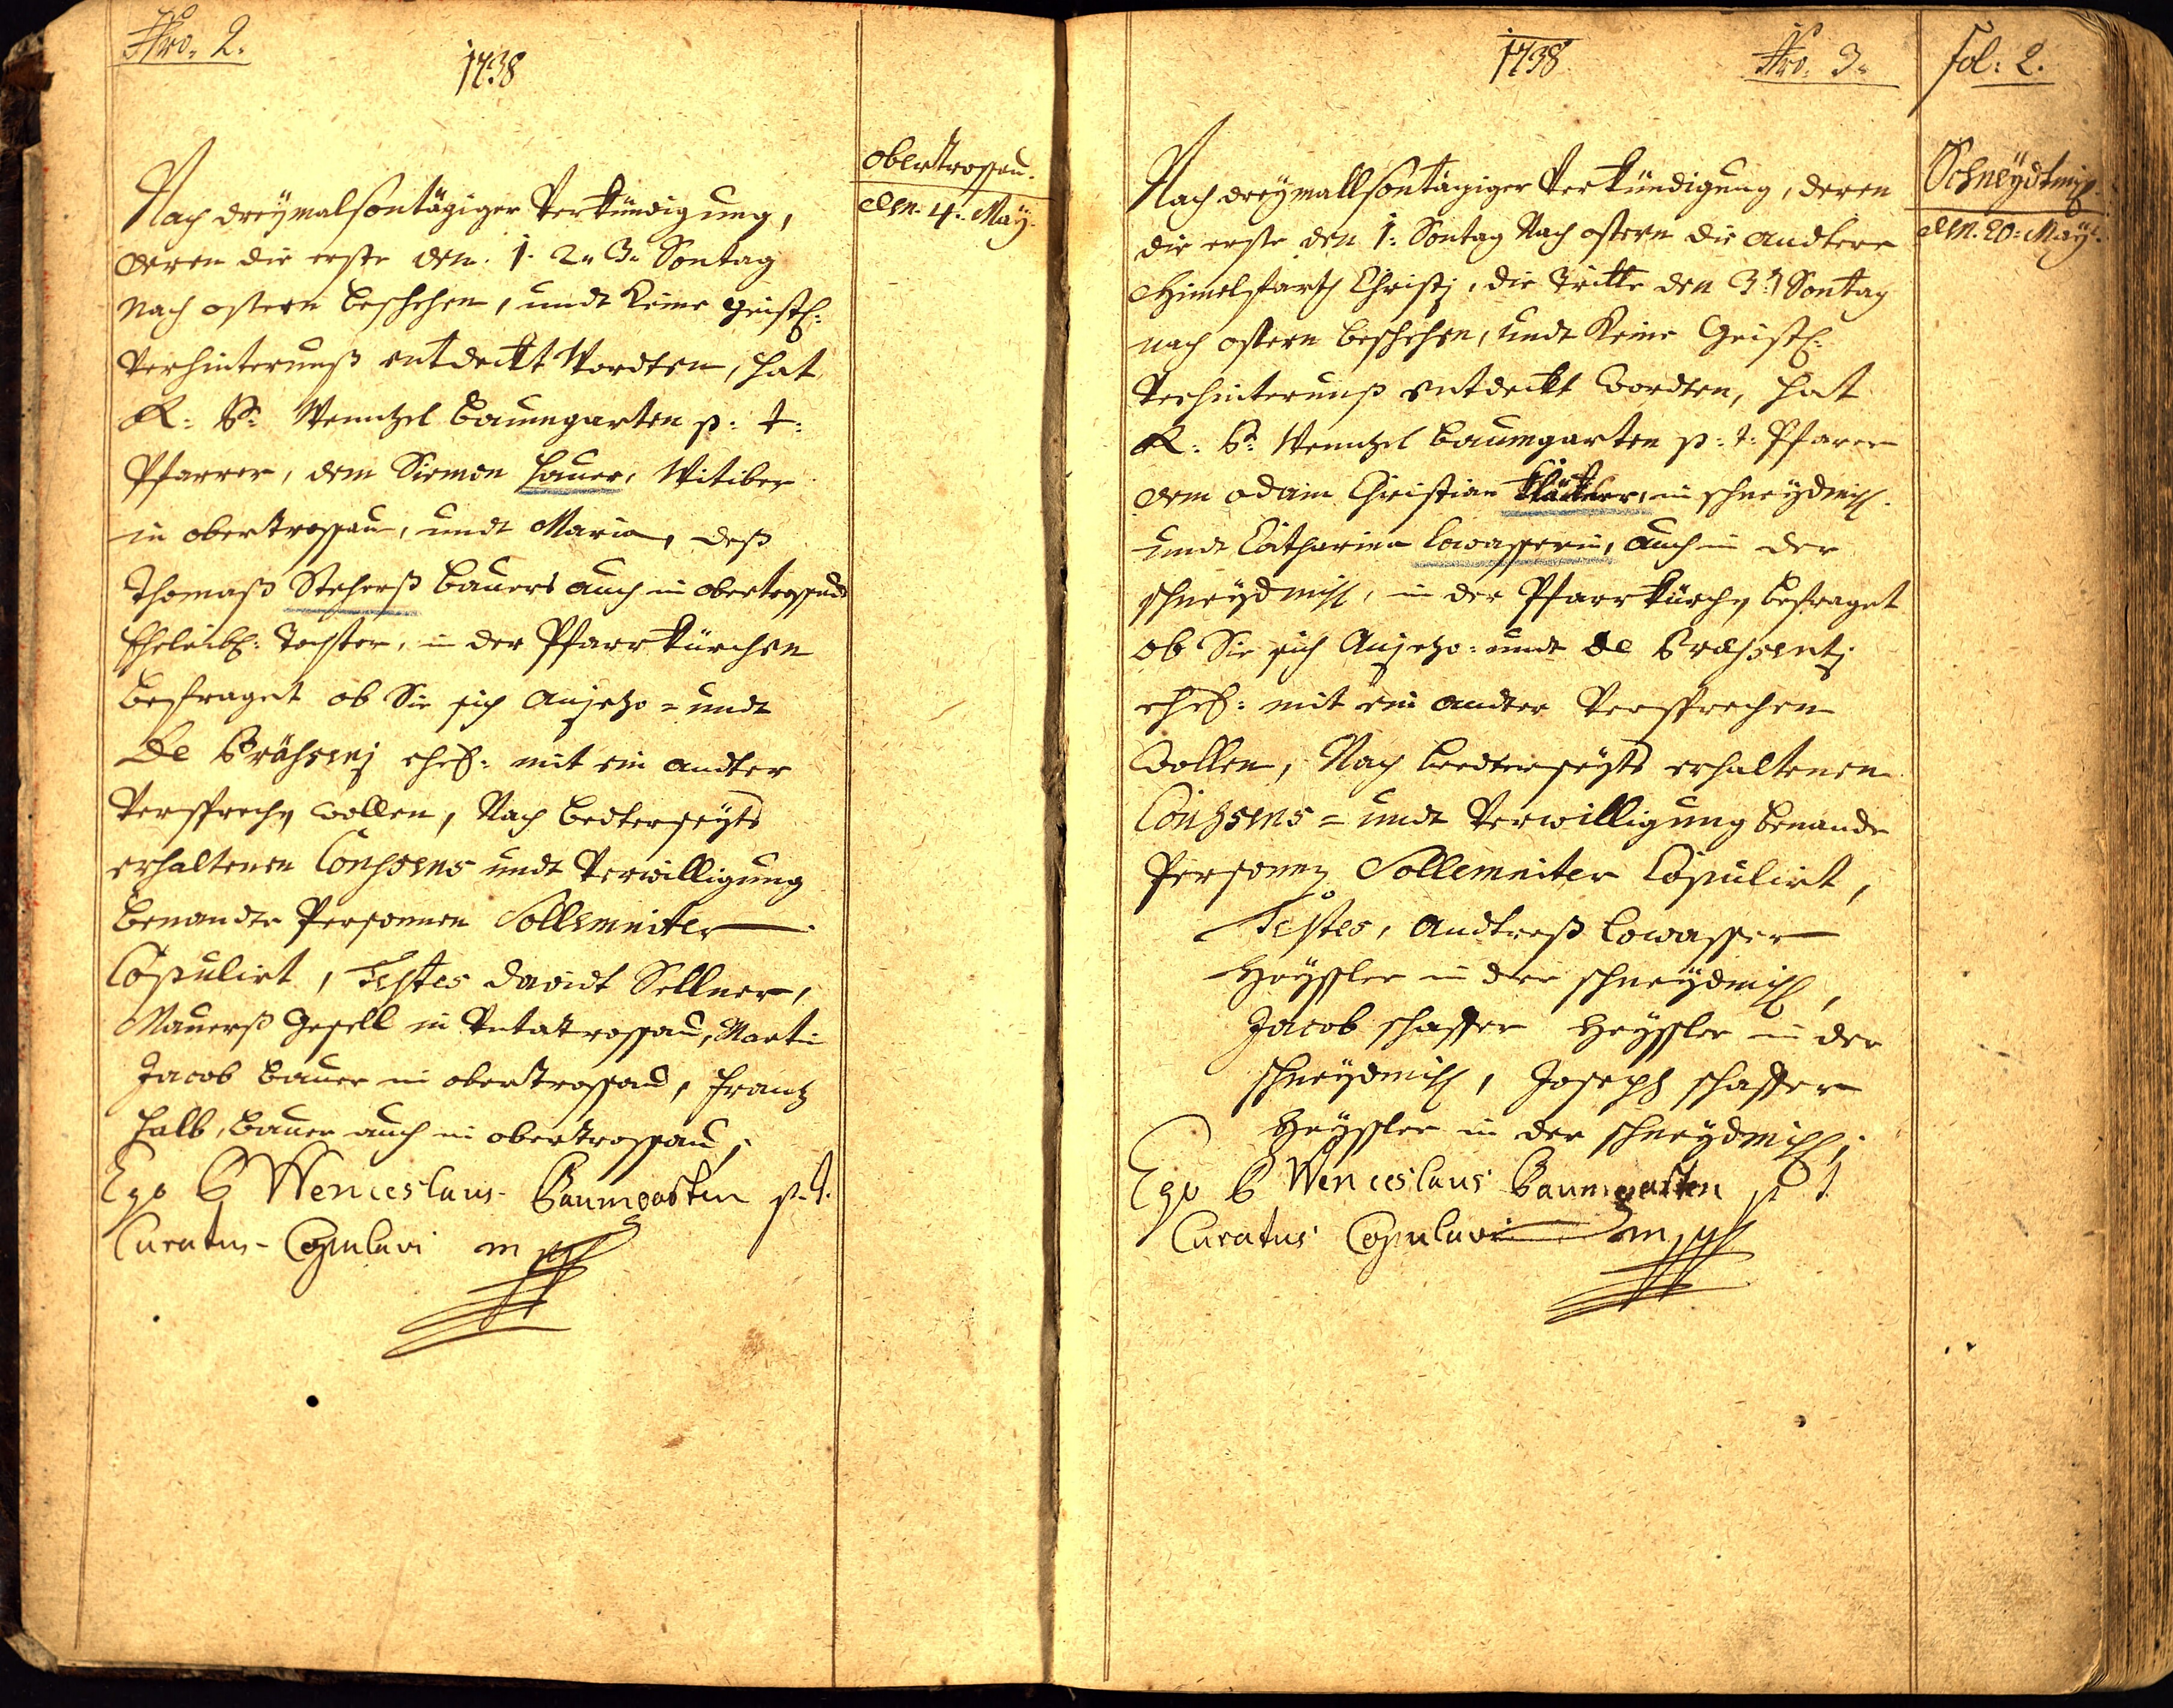 Nro. 2.
1738
Obertrossau.
den. 4. May.
Nach dreymalsontägiger Verkündigung,
deren die erste den. 1. 2. 3. Sontag
nach ostern beschehen, undt keine geistl:
Verhinternuß entdeckt Wordten, hat
R: P: Wenntzel Baumgarten p: t:
Pfarrer, dem Siemon Hauer, Witiber
in obertrossau, undt Maria, deß
Thomaß Steherß Bauers auch in obertrossau
Eheleibl: Tochter, in der Pfarrkürchen
befraget ob Sie sich anjetzo = undt
De Prähsenj ehel: mit ein andter
Versprechen wollen, Nach bedterseyts
erhaltenen Conhsens undt Verwilligung
benandte Personnen Sollemniter
Copulirt, Testes Davidt Sellner,
Maurerß Gesell in Untatrossau, Martin
Jacob Bauer in obertrossau, Frantz
Halb, Bauer auch in obertrossau,
Ego P Wenceslaus Baumgarten p. t.
Curatus Copulavi mpp
1738
Nro. 3.
Fol: 2.
Schneydtmihl
den. 20. May.
Nach dreymallsontägiger Verkündigung, deren
die erste den 1: Sontag Nach ostern die andtere
Himelsfarth Christj, die Tritte den 3t Sontag
nach ostern beschehen, undt keine Geistl:
Verhinternuß entdeckt wordten, hat
R: P: Wenntzel Baumgarten p: t: Pfarrer
dem Adam Christian in schneydmihl
undt Catharina Lowasserin, auch in der
schneydmihl, in der Pfarrkürchen befraget
ob Sie sich Anjetzo = undt De Præhsentj
ehel: mit ein andter Versprechen
Wollen, Nach bedterseyts erhaltenen
Conhsens = undt Verwilligung benande
Personnen Sollemniter Copulirt,
Testes, Andtreß Lowasser
Heyssler in der schneydmihl,
Jacob schaffer Heyssler in der
schneydmihl, Joseph schaffer
Heyssler in der schneydmihl,
Ego P Wenceslaus Baumgarten p t
Curatus Copulavi mpp